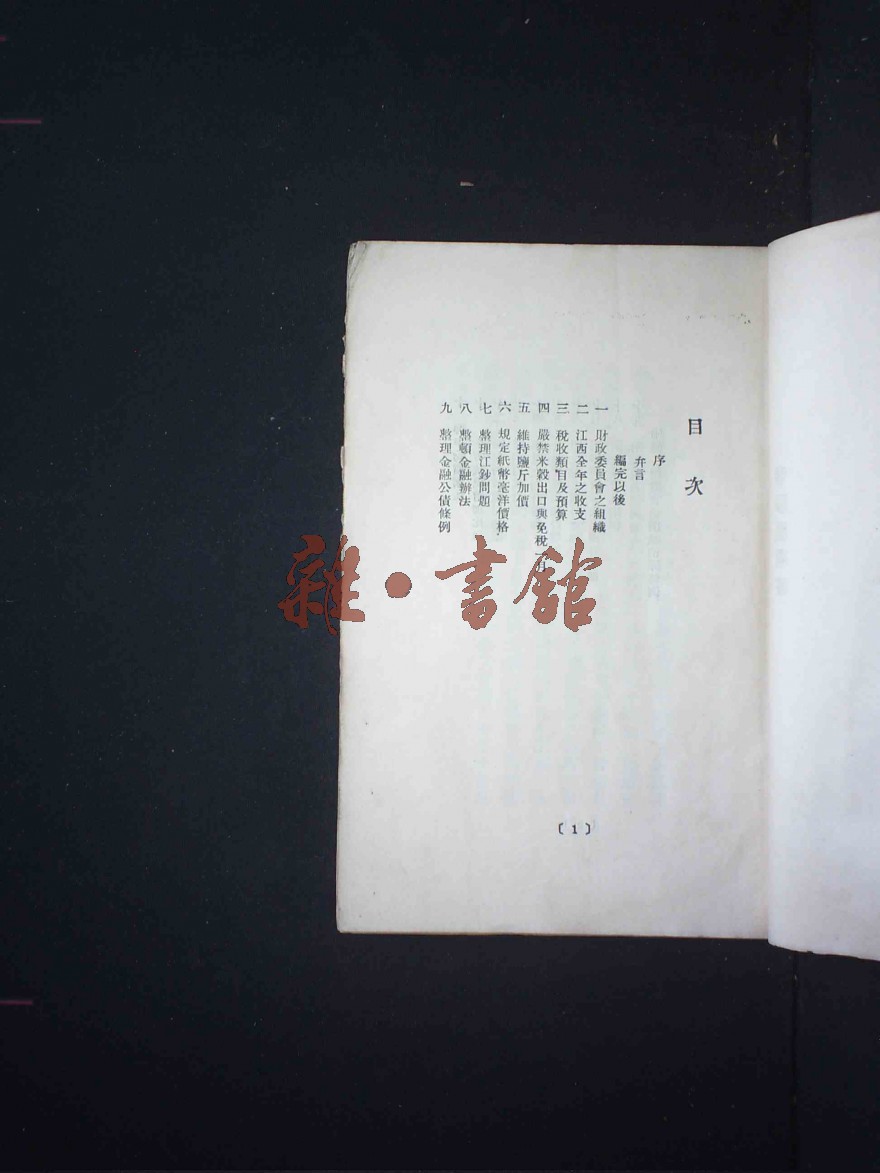 目次
序
弁言
編完以後
一 財政委員會之組織
二 江西全年之收支
三 稅收類目及預算
四 嚴禁米穀出口與免稅一月
五 維持鹽斤加價
六 規定紙幣毫洋價格
七 整理江鈔問題
八 整頓金融辦法
九 整理金融公債條例
〔1〕
雜·書館